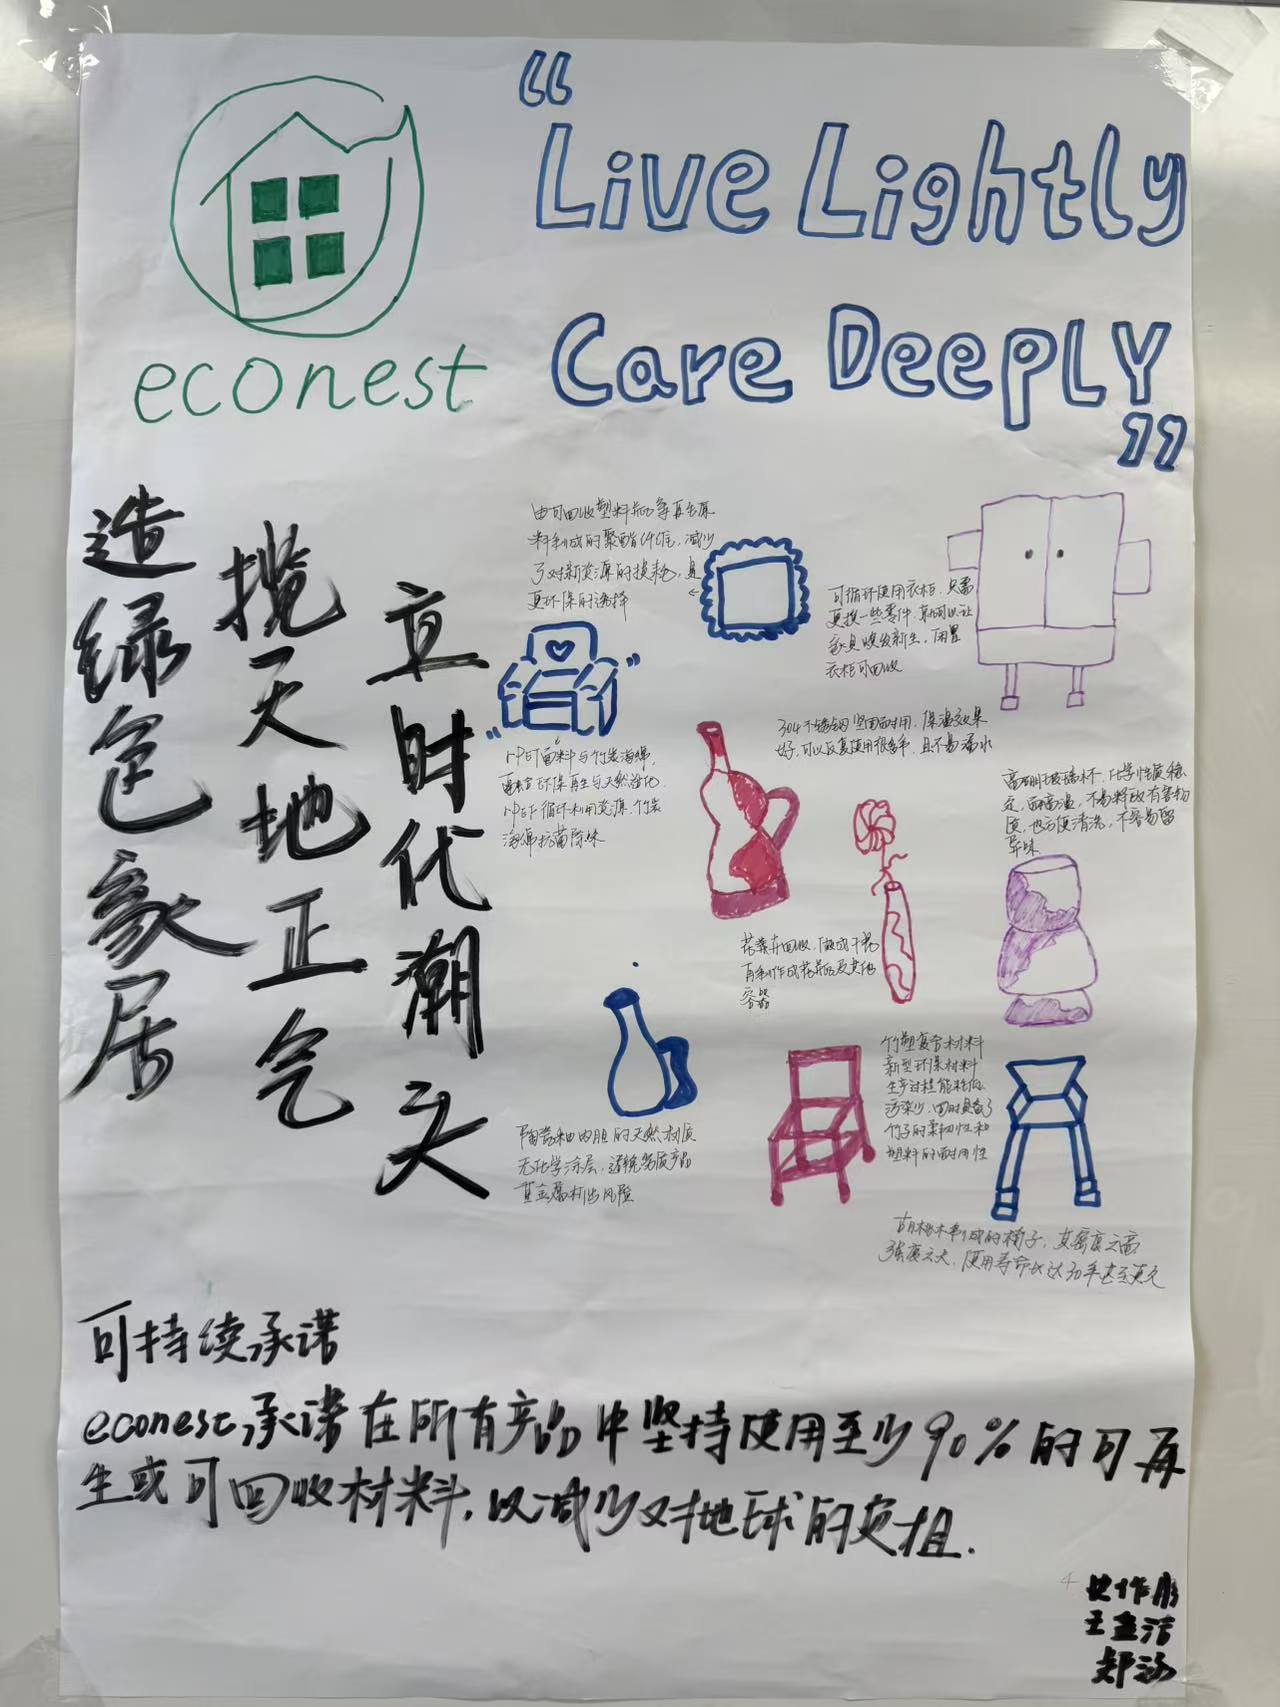 econest
“Live Lightly
Care DeepLY”
造绿色家居
揽天地正气
立时代潮头
由可回收塑料瓶等再生原
料制成的聚酯纤维，减少
了对新资源的损耗，是
更环保的选择
可循环使用衣柜，只需
更换一些零件，就可以让
家具焕发新生，闲置
衣柜可回收
rPET面料与竹炭海绵，
环保再生与天然活化
rPET循环利用资源，竹炭
海绵抗菌除味
304不锈钢坚固耐用，保温效果
好，可以反复使用很多年，且不易漏水
高硼硅玻璃杯，化学性质稳
定，耐高温，不易释放有害物
质，也方便清洗，不容易留
异味
花瓣回收，做成干花
再制作成花瓶及其他
容器
陶瓷釉内胆的天然材质
无化学涂层，避免劣质产品
重金属析出风险
竹塑复合材料
新型环保材料
生产过程能耗低
污染少，同时具备了
竹子的柔韧性和
塑料的耐用性
胡桃木制成的椅子，其密度之高
强度之大，使用寿命长达30年甚至更久
可持续承诺
econest承诺在所有产品中坚持使用至少90%的可再
生或可回收材料，以减少对地球的负担.
王孟洁